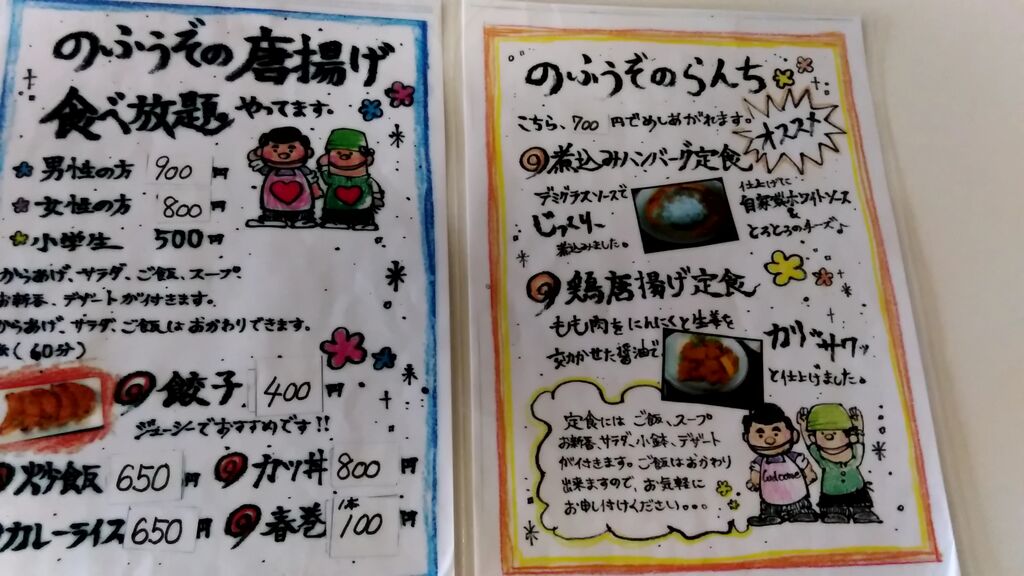 のふうぞの唐揚げ
食べ放題やってます。
男性の方 900円
女性の方 800円
小学生 500円
からあげ、サラダ、ご飯、スープ
お新香、デザートが付きます。
からあげ、サラダ、ご飯はおかわりできます。
(60分)
餃子 400円
ジューシーでおすすめです!!
炒飯 650円
カツ丼 800円
カレーライス 650円
春巻 1本 100円
のふうぞのらんち
こちら、700円でめしあがれます。
オススメ
煮込みハンバーグ定食
デミグラスソースで
じっくりー
煮込みました。
仕上げに
自家製ホワイトソース
を
とろとろのチーズ♪
鶏唐揚げ定食
もも肉をにんにくと生姜を
効かせた醤油で
カリッサワッ
と仕上げました。
定食には ご飯、スープ
お新香、サラダ、小鉢、デザート
が付きます。ご飯はおかわり
出来ますので、お気軽に
お申し付けください。。。
Welcome